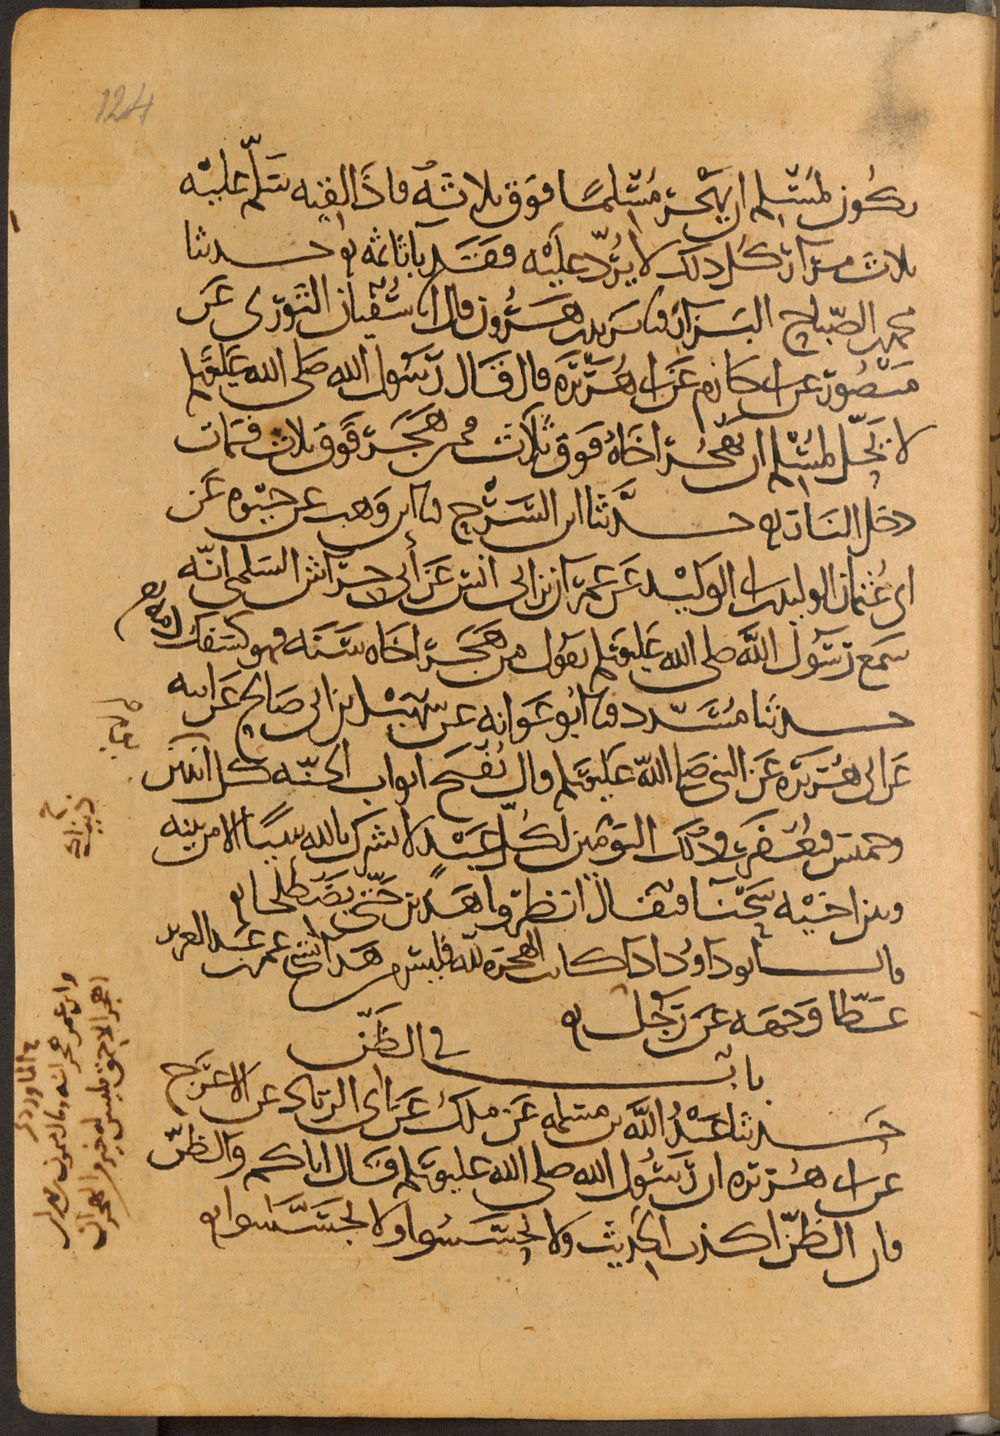 124
يكون لمسلم ان يهجر مسلما فوق ثلاثة فاذا لقيه سلم عليه
ثلاث مرار كل ذلك لا يرد عليه فقد باء باثمه حدثنا
محمد بن الصباح البزاز نا يزيد بن هرون قال انا سفيان الثوري عن
منصور عن ابي حازم عن ابي هريرة قال قال رسول الله صلى الله عليه وسلم
لا يحل لمسلم ان يهجر اخاه فوق ثلاث فمن هجر فوق ثلاث فمات
دخل النار حدثنا ابن السرح نا ابن وهب عن حيوة عن
ابي عثمان الوليد بن ابي الوليد عن عمران بن ابي انس عن ابي خراش السلمي انه
سمع رسول الله صلى الله عليه وسلم يقول من هجر اخاه سنة فهو كسفك دمه
حدثنا مسدد نا ابو عوانه عن سهيل بن ابي صالح عن ابيه
عن ابي هريرة عن النبي صلى الله عليه وسلم قال تفتح ابواب الجنه كل اثنين
وخميس فيغفر في ذلك اليومين لكل عبد لا يشرك بالله شيئا الا من بينه
وبين اخيه شحنا فيقال انظروا هذين حتى يصطلحا
قال ابو داود اذا كانت الهجرة لله فليس من هذا بشي عمر بن عبد العزيز
غطا وجهه عن رجل
باب في الظن
حدثنا عبد الله بن مسلمه عن ملك عن ابي الزناد عن الاعرج
عن ابي هريرة ان رسول الله صلى الله عليه وسلم قال اياكم والظن
فان الظن اكذب الحديث ولا تحسسوا ولا تجسسوا